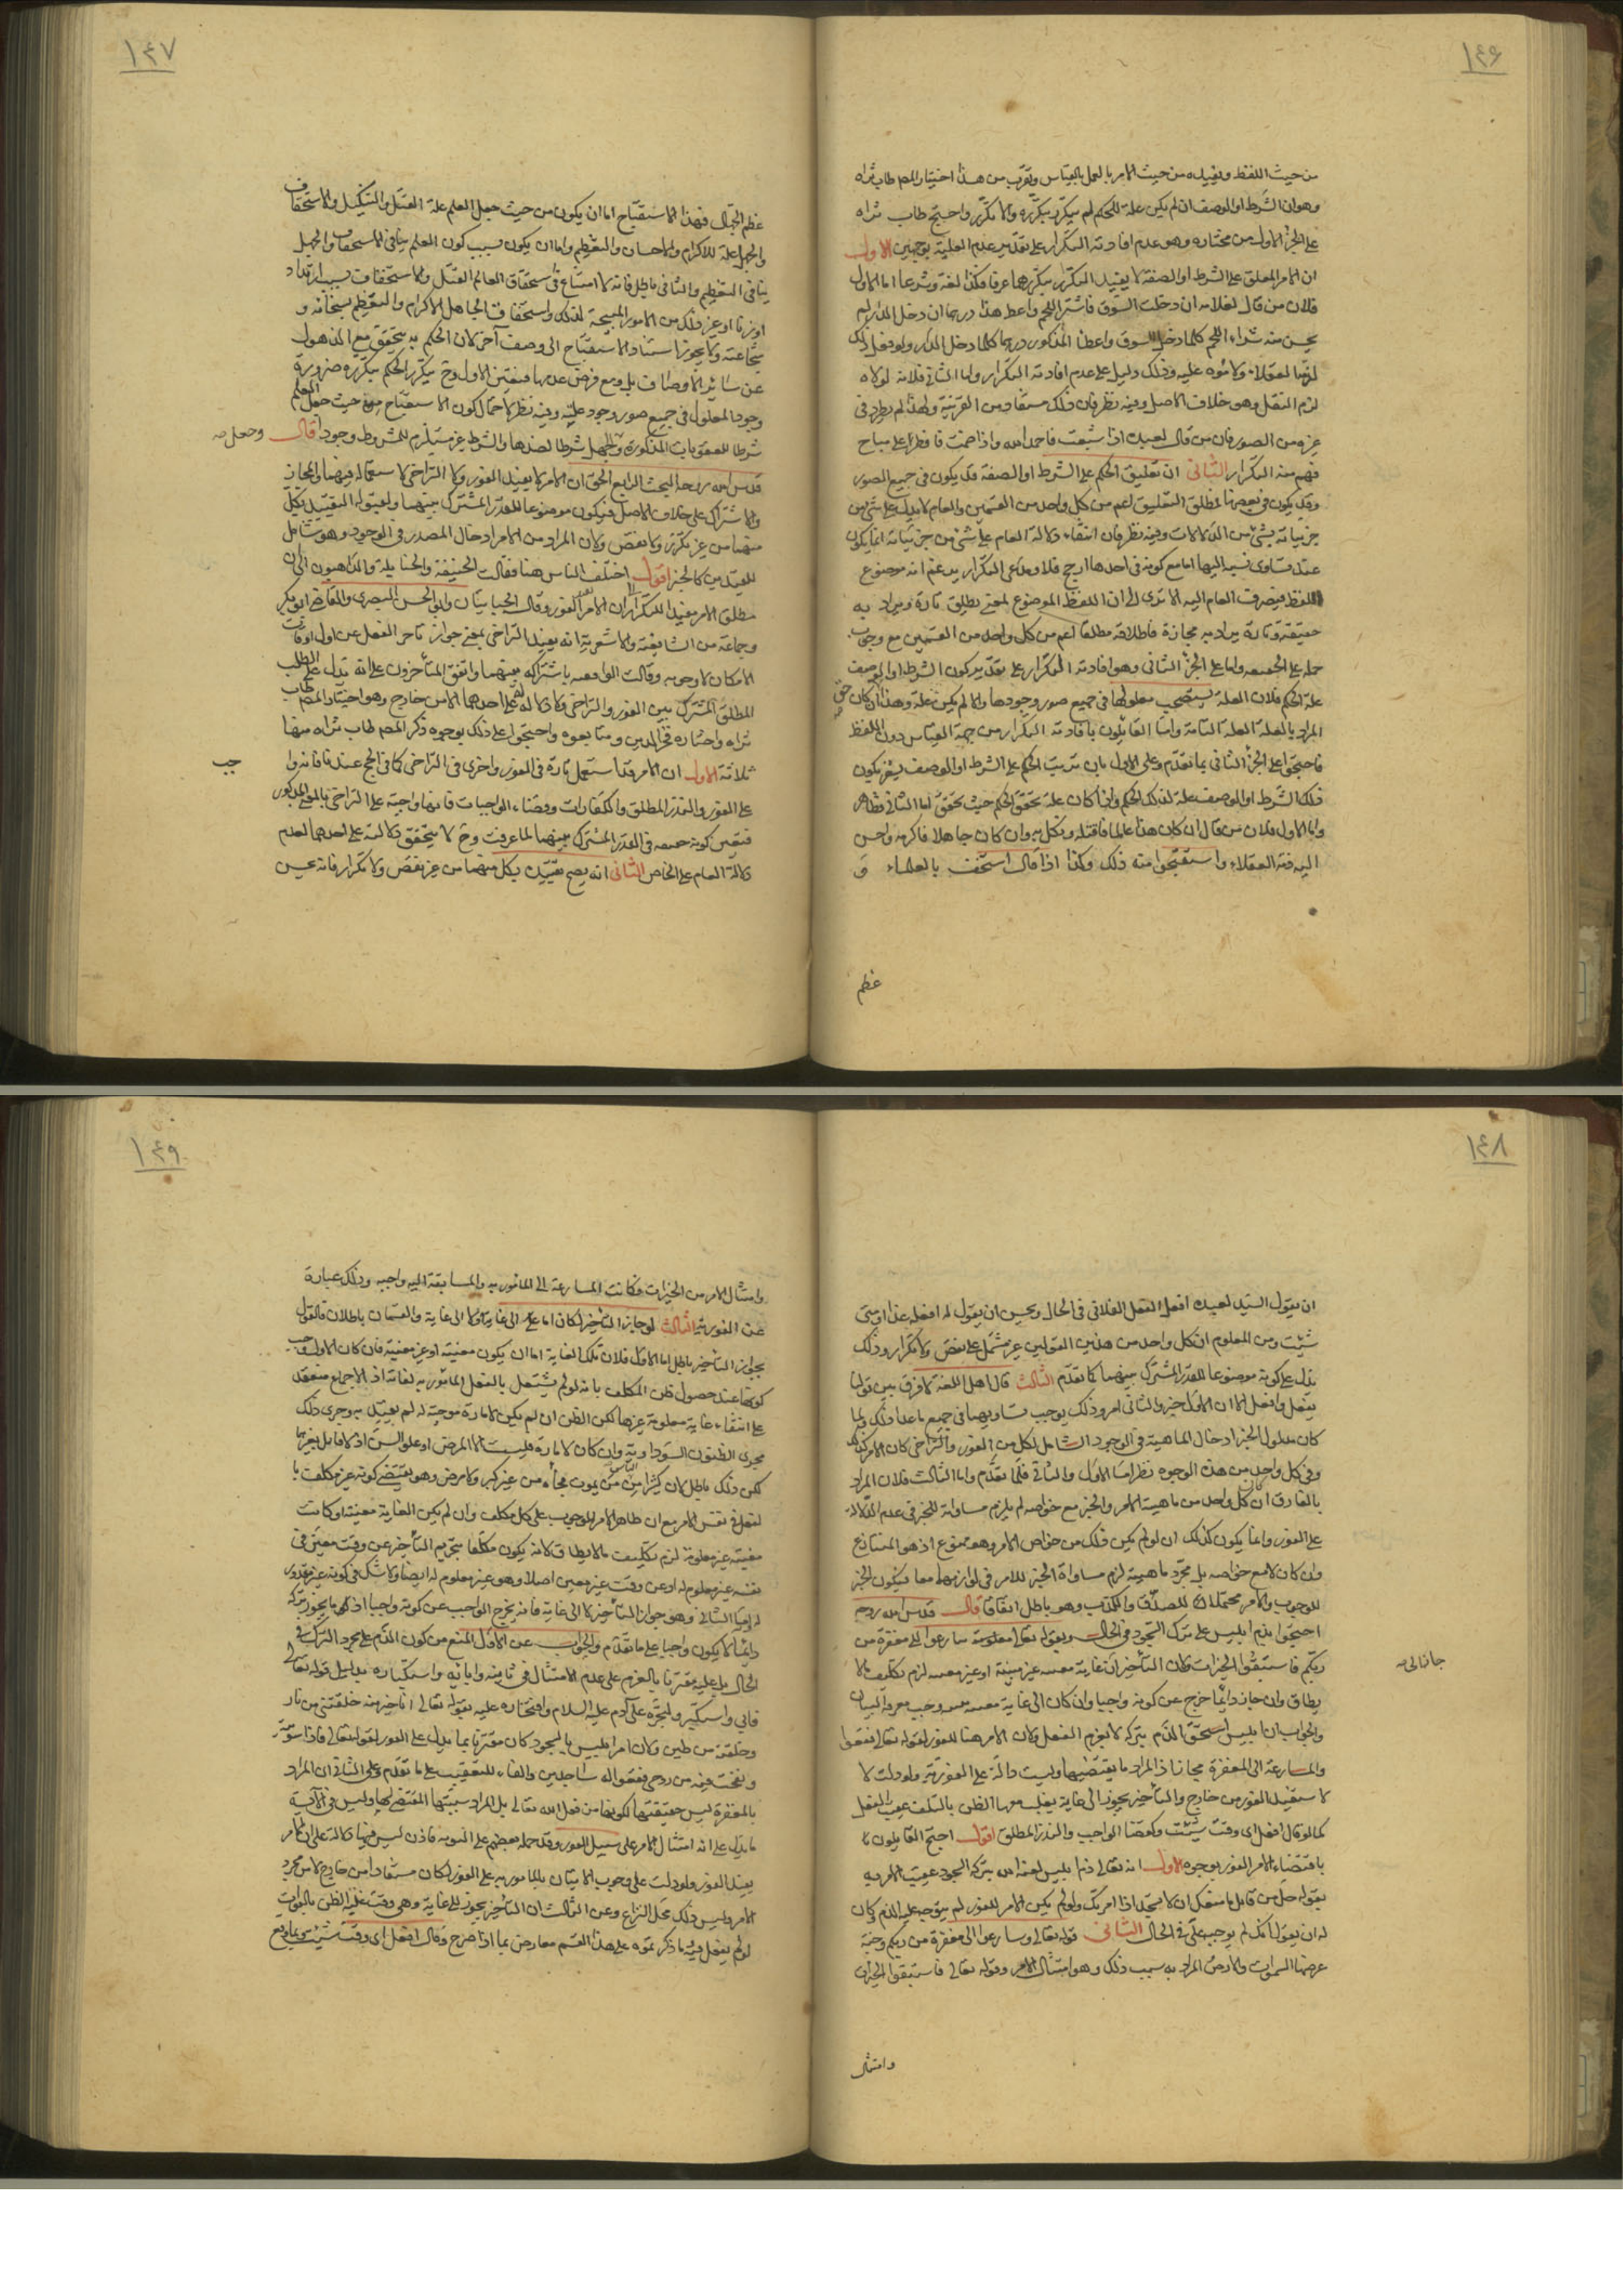 ١٤٦
من حيث اللفظ ويفيده من حيث الامر بالعمل بالقياس وتقرب من هذا اختيار المصـ طاب ثراه
وهو ان الشرط او الوصف ان لم يكن علة للحكم لم يتكرر بتكرره والا تكرر واحتج طاب ثراه
على الجزء الاول من مختاره وهو عدم افادته التكرار على تقدير عدم العلية بوجهين الاول
ان الامر المعلق على الشرط او الصفة لا يفيد التكرار بتكررهما عرفا فكذا لغة وشرعا اما الاول
فلان من قال لغلامه ان دخلت السوق فاشتر اللحم واعط هذا درهما ان دخل الدار لم
يحسن منه شراء اللحم كلما دخل السوق واعطاء المذكور درهما كلما دخل الدار ولو فعل ذلك
لذمه العقلاء ولاموه عليه وذلك دليل على عدم افادته التكرار واما الثاني فلانه لولاه
لزم النقل وهو خلاف الاصل وفيه نظر فان ذلك مستفاد من القرينة ولهذا لم يطرد في
غيره من الصور فان من قال لعبده اذا شبعت فاحمد الله واذا صمت فافطر على مباح
فهم منه التكرار الثاني ان تعليق الحكم على الشرط او الصفة قد يكون في جميع الصور
وقد يكون في بعضها فمطلق التعليق اعم من كل واحد من القسمين والعام لا يدل على شيء من
جزئياته بشيء من الدلالات وفيه نظر فان انتفاء دلالة العام على شيء من جزئياته انما يكون
عند تساوي نسبته اليها اما مع كونه في احدها ارجح فلا ومدعي التكرار يدعي انه موضوع
اللفظ فيصرف العام اليه الا ترى الى ان اللفظ الموضوع لمعنى يطلق تارة ويراد به
حقيقته وتارة يراد به مجازه فاطلاقه مطلقا اعم من كل واحد من القسمين مع وجوب
حمله على الحقيقة واما على الجزء الثاني وهو افادته التكرار على تقدير كون الشرط او الوصف
علة الحكم فلان العلة تستصحب معلولها في جميع صور وجودها والا لم يكن علة وهذا ان كان حق
المراد بالعلة العلة التامة واما القائلون بافادته التكرار من جهة القياس دون اللفظ
فاحتجوا على الجزء الثاني بما تقدم وعلى الاول بان ترتيب الحكم على الشرط او الوصف يشعر بكون
ذلك الشرط او الوصف علة لذلك الحكم واذا كان علة تحقق الحكم حيث تحقق اما الثاني فظاهر
واما الاول فلان من قال ان كان هذا عالما فاقتله ونكل به وان كان جاهلا فاكرمه واحسن
اليه ذمه العقلاء واستقبحوا منه ذلك وكذا اذا قال استخف بالعلماء و
عظم
١٤٧
عظم الجهال فهذا الاستقباح اما ان يكون من حيث جعل العلم علة القتل والتنكيل والاستخفاف
والجهل علة للاكرام والاحسان والتعظيم واما ان يكون بسبب كون العلم ينافي الاستخفاف والجهل
ينافي التعظيم والثاني باطل فانه لا امتناع في استحقاق العالم القتل والاستخفاف بسبب ارتداد
او زنا او غير ذلك من الامور المبيحة لذلك واستحقاق الجاهل الاكرام والتعظيم بسخائه و
شجاعته ولا يجوز استناد الاستقباح الى وصف آخر لان الحكم به يتحقق مع الذهول
عن سائر الاوصاف بل ومع فرض عدمها فتعين الاول وح يتكرر الحكم بتكرره ضرورة
وجود المعلول في جميع صور وجود علته وفيه نظر لاحتمال كون الاستقباح من حيث جعل العلم
شرطا للعقوبات المذكورة وجعل الجهل شرطا لضدها والشرط غير مستلزم للمشروط وجودا قال
وجعل صـ
قدس الله روحه البحث الرابع الحق ان الامر لا يفيد الفور ولا التراخي لاستعماله فيهما والمجاز
والاشتراك على خلاف الاصل فيكون موضوعا للقدر المشترك بينهما ولقبوله التقييد بكل
منهما من غير تكرير ولا نقض ولان المراد من الامر ادخال المصدر في الوجود وهو شامل
للقيدين كالخبر اقول اختلف الناس هنا فقالت الحنفية والحنابلة والذاهبون الى ان
مطلق الامر مفيد للتكرار ان الامر للفور وقال الجبائيان وابو الحسين البصري والقاضي ابو بكر
وجماعة من الشافعية والاشعرية انه يفيد التراخي بمعنى جواز تاخر الفعل عن اول اوقات
الامكان لا وجوبه وقالت الواقفية باشتراكه بينهما واتفق المتأخرون على انه يدل على الطلب
المطلق المشترك بين الفور والتراخي ولا دلالة له على احدهما الا من خارج وهو اختيار المصـ طاب
ثراه واختاره فخر الدين ومتابعوه واحتجوا على ذلك بوجوه ذكر المصـ طاب ثراه منها
ثلاثة الاول ان الامر قد استعمل تارة في الفور واخرى في التراخي كما في الحج عندنا فانه وا
جب
على الفور والنذر المطلق والكفارات وقضاء الواجبات فانها واجبة على التراخي بالمعنى المذكور
فتعين كونه حقيقة في القدر المشترك بينهما لما عرفت وح لا يتحقق دلالته على احدهما لعدم
دلالة العام على الخاص الثاني انه يصح تقييده بكل منهما من غير نقض ولا تكرار فانه يحسن
١٤٨
ان يقول السيد لعبده افعل الفعل الفلاني في الحال ويحسن ان يقول له افعله غدا او متى
شئت ومن المعلوم ان كل واحد من هذين القولين غير مشتمل على نقض ولا تكرار وذلك
يدل على كونه موضوعا للقدر المشترك بينهما كما تقدم الثالث قال اهل اللغة لا فرق بين قولنا
يفعل وافعل الا ان الاول خبر والثاني امر وذلك يوجب تساويهما في جميع ما عدا ذلك ولما
كان مدلول الخبر ادخال الماهية في الوجود الشامل لكل من الفور والتراخي كان الامر كذلك
وفي كل واحد من هذه الوجوه نظر اما الاول والثاني فلما تقدم واما الثالث فلان المراد
بالفارق ان كان كل واحد من ماهية الامر والخبر مع خواصه لم يلزم مساواته للخبر في عدم الدلالة
على الفور وانما يكون كذلك ان لو لم يكن ذلك من خواص الامر وهو ممنوع اذ هو المتنازع
وان كان لا مع خواصه بل مجرد ماهيته لزم مساواة الخبر للامر في لوازمهما معا فيكون الخبر
للوجوب والامر محتملا للصدق والكذب وهو باطل اتفاقا قال قدس الله روحه
احتجوا بذم ابليس على ترك السجود في الحال وبقوله تعالى سارعوا الى مغفرة من
ربكم فاستبقوا الخيرات ولان التأخير ان جاز الى غاية معينة غير مبينة او غير معينة لزم تكليف ما لا
جاز الى صـ
يطاق وان جاز دائما خرج عن كونه واجبا وان كان الى غاية معينة وجب معرفة البيان
والجواب ان ابليس استحق الذم بتركه لا بعزم الفعل ولان الامر هنا للفور لقوله تعالى فقعوا
والمسارعة الى المغفرة مجاز اذ المراد ما يقتضيها وليست دالة على الفورية ولو دلت لا
لاستفيد الفور من خارج والتأخير يجوز الى غاية يغلب معها الظن بالتلف عقيب الفعل
كما لو قال افعل اي وقت شئت وكقضاء الواجب والنذر المطلق اقول احتج القائلون
باقتضاء الامر الفور بوجوه الاول انه تعالى ذم ابليس لعنه الله بتركه السجود عقيب الامر به
بقوله جل من قائل ما منعك ان لا تسجد اذ امرتك ولو لم يكن الامر للفور لم يتوجه عليه الذم وكان
له ان يقول انك لم توجبه علي في الحال الثاني قوله تعالى وسارعوا الى مغفرة من ربكم وجنة
عرضها السموات والارض المراد به سبب ذلك وهو امتثال الامر وقوله تعالى فاستبقوا الخيرات
وامتثال
١٤٩
وامتثال الامر من الخيرات فكانت المسارعة الى المأمور به والمسابقة اليه واجبة وذلك عبارة
عن الفورية الثالث لو جاز التأخير لكان اما الى غاية او لا الى غاية والقسمان باطلان فالقول
بجواز التأخير باطل اما الاول فلان تلك الغاية اما ان يكون معينة او غير معينة فان كان الاول وجب
كونها عند حصول ظن المكلف بانه لو لم يشتغل بالفعل المأمور به لفاته اذ الاجماع منعقد
على انتفاء غاية معلومة غيرها لكن الظن ان لم يكن لامارة موجبة له لم يعتد به وجرى ذلك
مجرى الظنون السوداوية وان كان لامارة فليست الا المرض او علو السن اذ لا قائل بغيرهما
لكن ذلك باطل لان كثيرا من الناس يموت فجأة من غير كبر ولا مرض وهو يقتضي كونه غير مكلف با
لفعل في نفس الامر مع ان ظاهر الامر للوجوب على كل مكلف وان لم يكن الغاية معينة او كانت
معينة غير معلومة لزم تكليف ما لا يطاق لانه يكون مكلفا بتحريم التأخير عن وقت معين في
نفسه غير معلوم له او عن وقت غير معين اصلا وهو غير معلوم له ايضا ولا شك في كونه غير مقدور
له واما الثاني وهو جواز التأخير لا الى غاية فانه يخرج الواجب عن كونه واجبا اذ ما يجوز تركه
دائما لا يكون واجبا على ما تقدم والجواب عن الاول المنع من كون الذم على مجرد الترك في
الحال بل عليه مقترنا بالعزم على عدم الامتثال في ثانيه وابائه واستكباره بدليل قوله تعالى
فابى واستكبر وتجبره على آدم عليه السلام وافتخاره عليه بقوله تعالى انا خير منه خلقتني من نار
وخلقته من طين ولان امر ابليس بالسجود كان مقترنا بما يدل على الفور لقوله تعالى فاذا سويته
ونفخت فيه من روحي فقعوا له ساجدين والفاء للتعقيب على ما تقدم وعلى الثاني ان المراد
بالمغفرة ليس حقيقتها لكونها من فعل الله تعالى بل المراد سببها المقتضي لها وليس في الآية
ما يدل على انه امتثال الامر على سبيل الفور وقد حمله بعضهم على التوبة فاذن ليس فيها دلالة على ان الامر
يفيد الفور ولو دلت على وجوب الاتيان بالمأمور به على الفور لكان مستفادا من خارج لا من مجرد
الامر وليس ذلك محل النزاع وعن الثالث ان التأخير يجوز الى غاية وهي وقت غلبة الظن بالفوات
لو لم يفعل فيه وما ذكرتموه على هذا القسم معارض بما اذا صرح وقال افعل اي وقت شئت وبما وقع